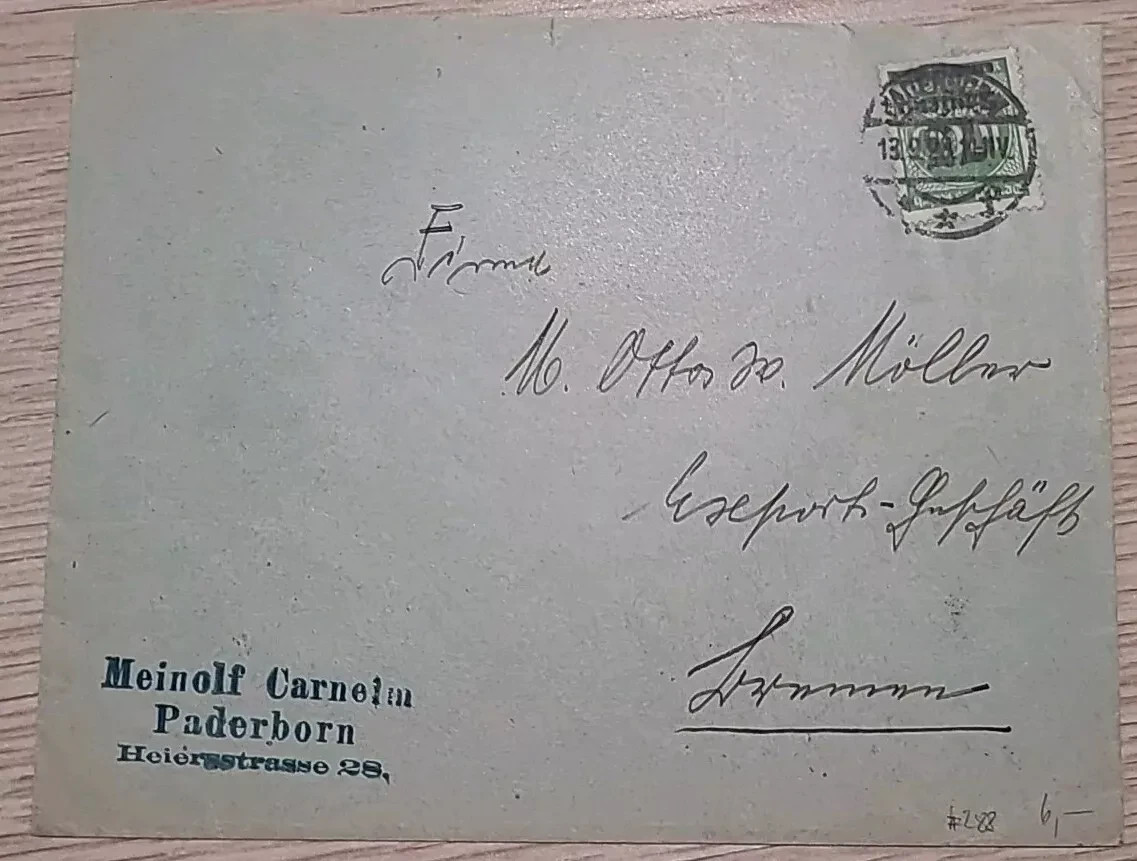 13.9.23
Firma
M. Otto W. Möller
Export-Geschäft
Bremen
Meinolf Carnein
Paderborn
Heiersstrasse 28,
#288
6,—